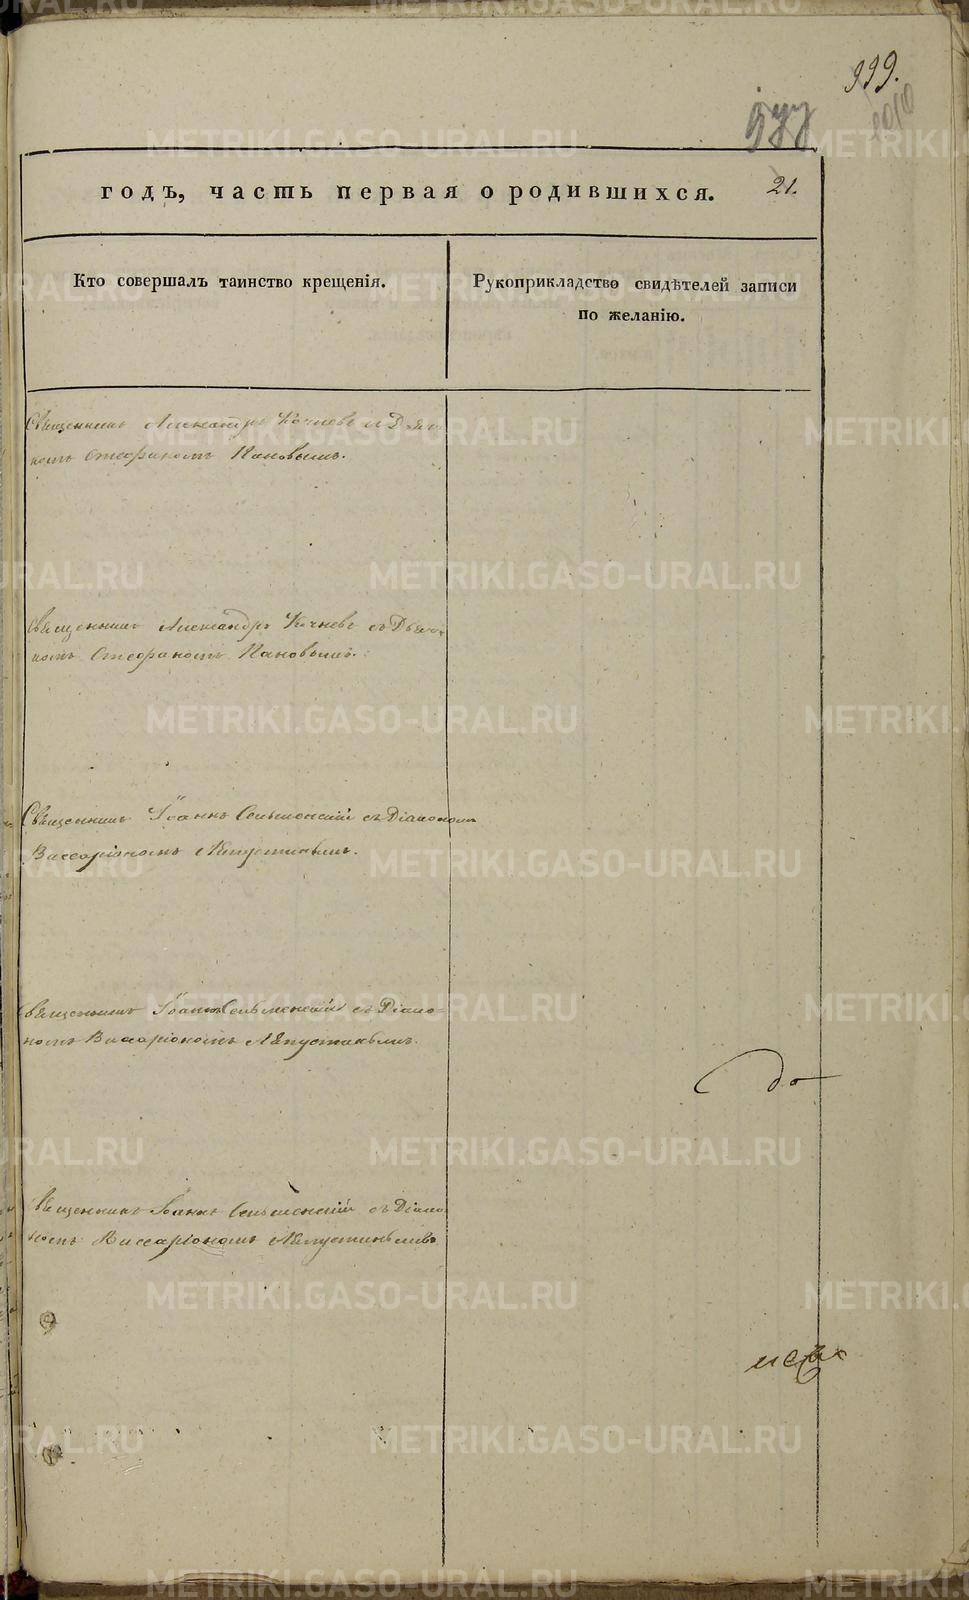 999.
577
1010
годъ, часть первая о родившихся. 21.
Кто совершалъ таинство крещенія.
Рукоприкладство свидѣтелей записи
по желанію.
Священникъ Александръ Кочневъ и Дьяч-
комъ Стефаномъ Пановымъ.
Священникъ Александръ Кочневъ съ Дьяч-
комъ Стефаномъ Пановымъ.
Священникъ Іоаннъ Сельменскій съ Діакономъ
Виссаріономъ
Священникъ Іоаннъ Сельменскій съ Діако-
номъ Виссаріономъ
Священникъ Іоаннъ Сельменскій съ Діако-
номъ Виссаріономъ
METRIKI.GASO-URAL.RU